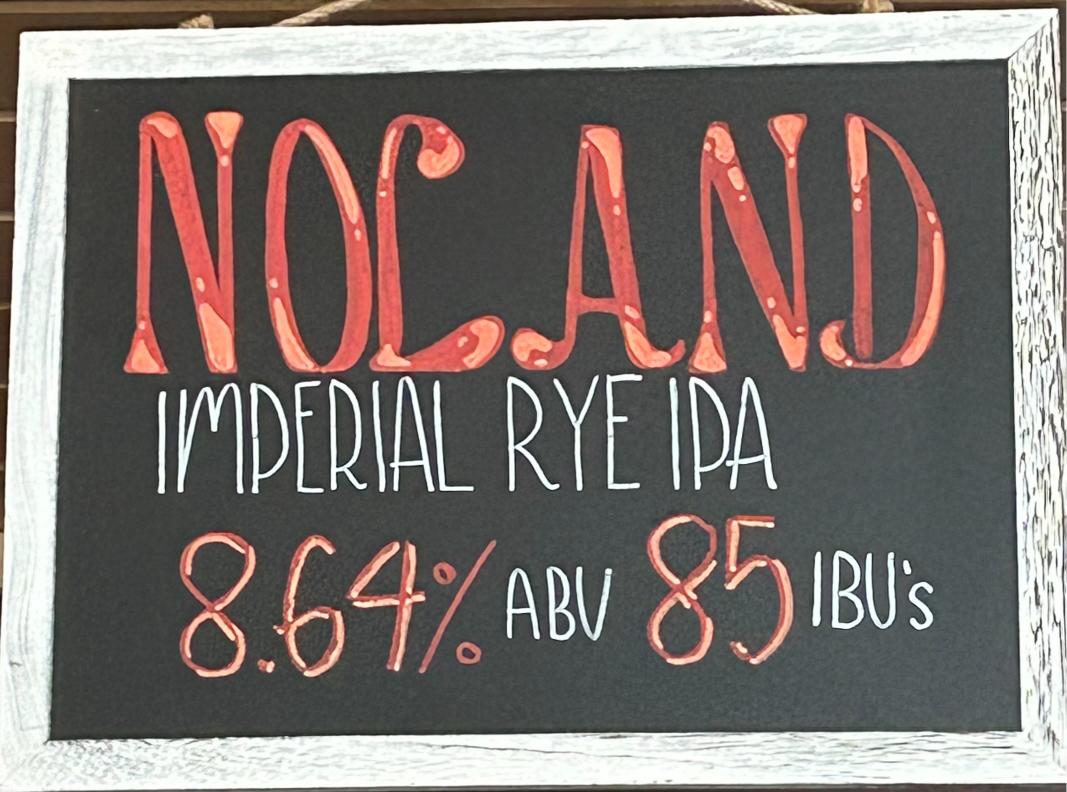 NOLAND
IMPERIAL RYE IPA
8.64% ABV 85 IBU's